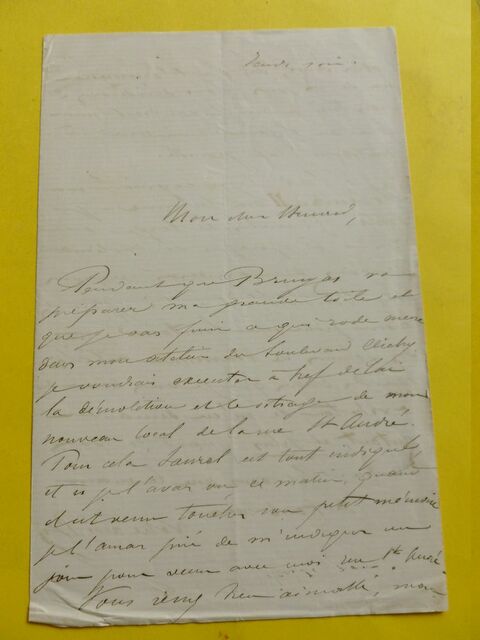 Jeudi soir.
Mon cher
Pendant que va
préparer ma grande toile et
que je vais finir ce qui
dans mon atelier du boulevard Clichy
je voudrais executer à bref délai
la démolition et le de mon
nouveau local de la rue St André.
Pour cela est tout indiqué
et si je l'avais vu ce matin, quand
il est venu toucher son petit mémoire
je l'aurais prié de m'indiquer un
jour pour venir avec moi rue St André.
Vous bien aimable, mon